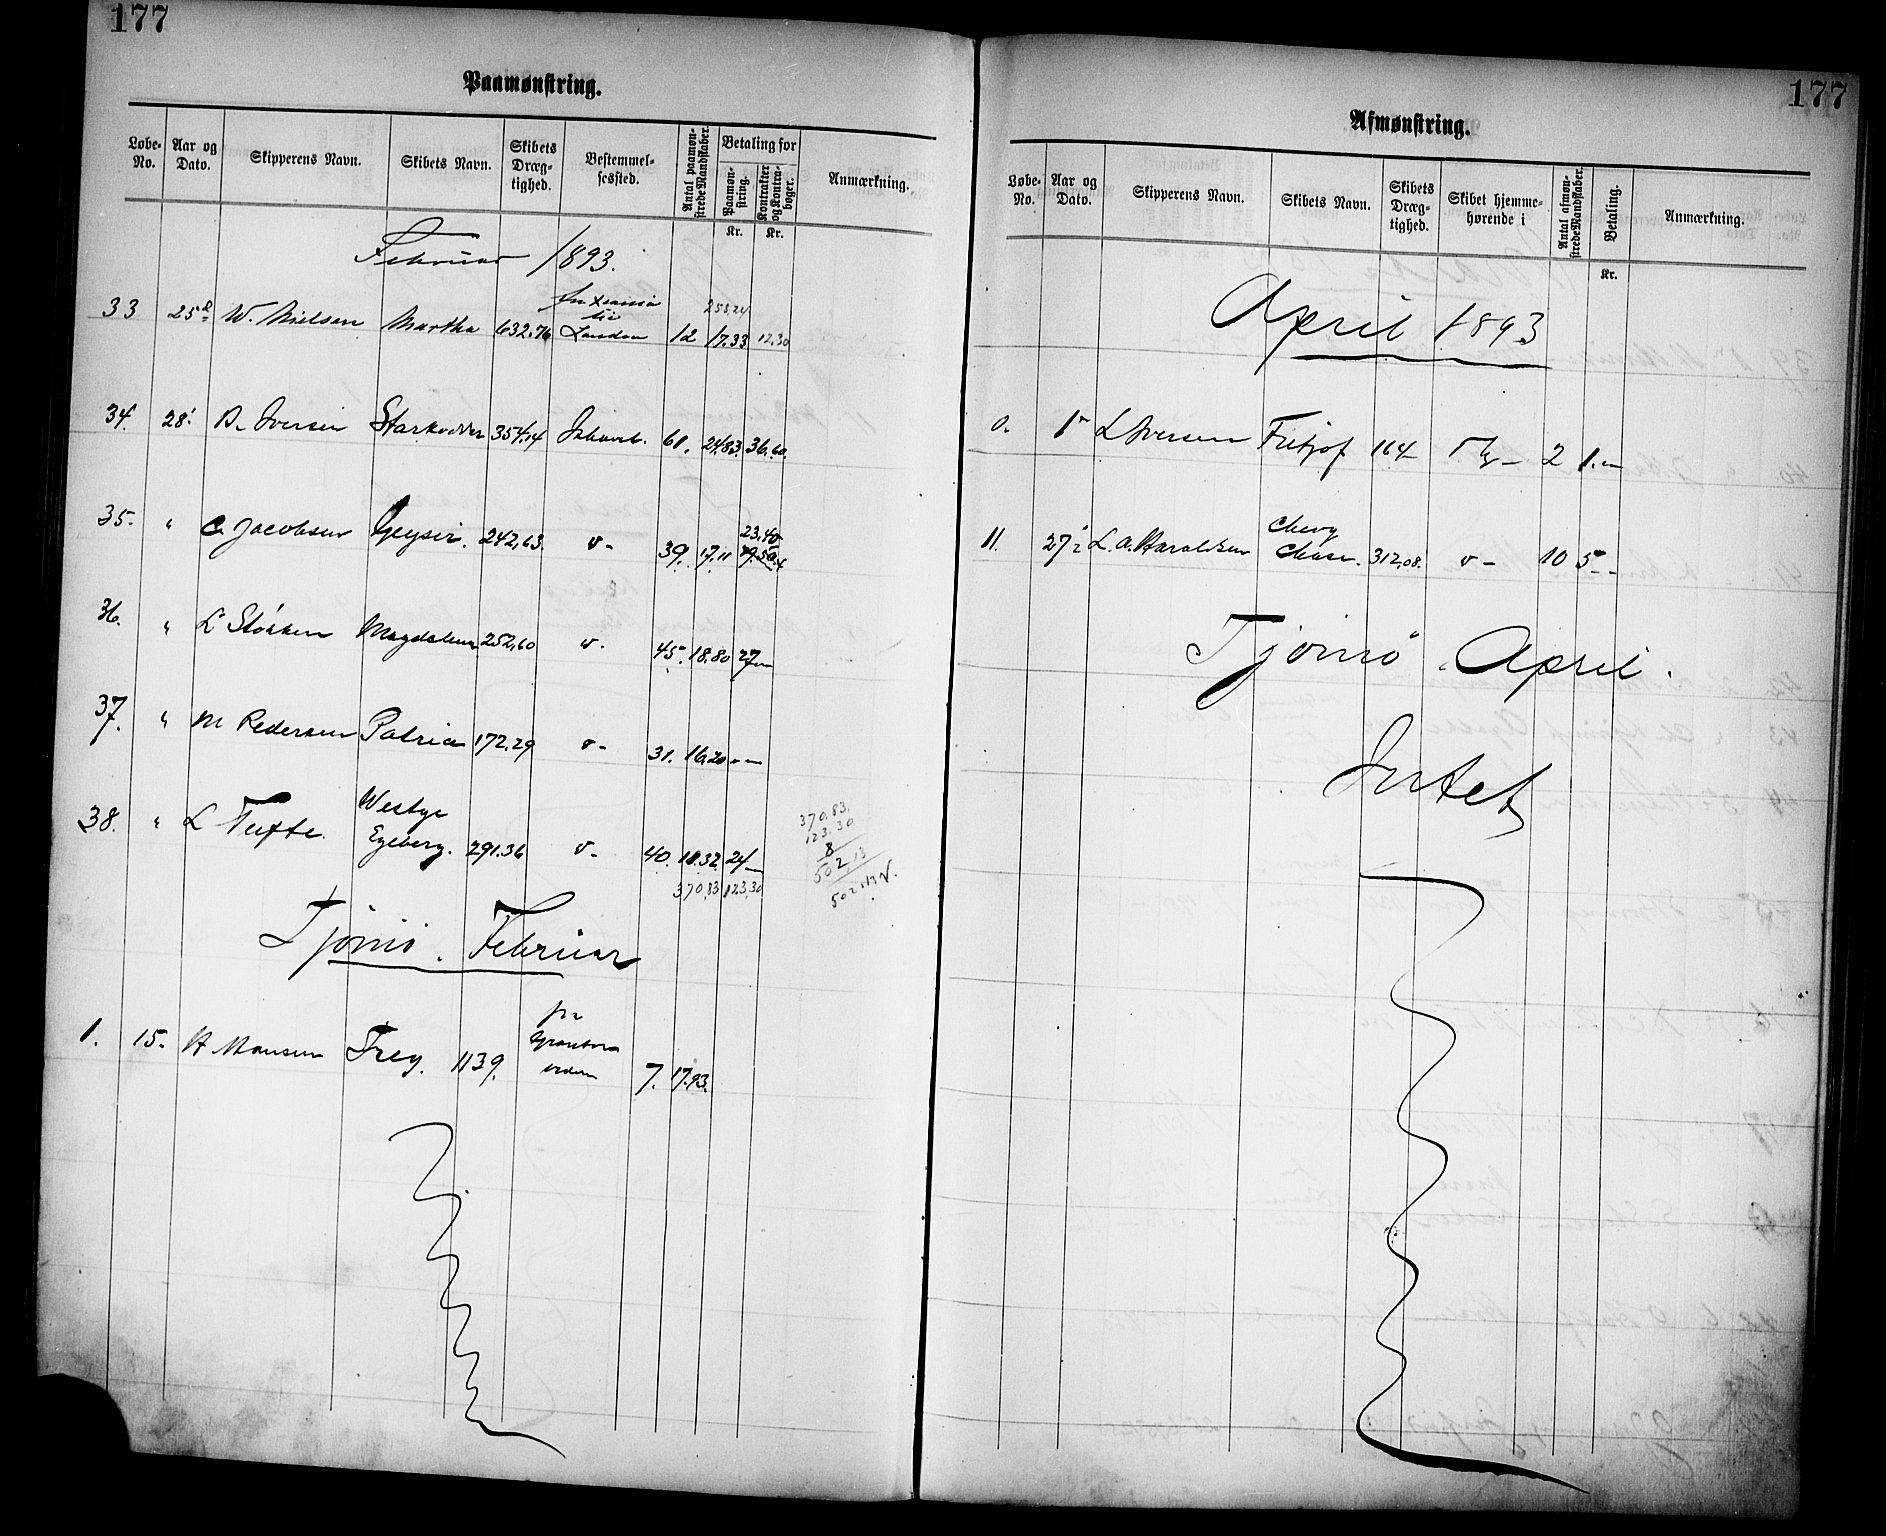 177
Paamønstring.
Løbe-No. Aar og Dato. Skipperens Navn. Skibets Navn. Skibets Dræg-tighed. Bestemmel-sessted. Antal paamøn-strede Mandskaber. Betaling for Paamøn-string. Kontrakter og Kontra-bøger. Anmærkning.
Kr. Kr.
Februar 1893.
253,24
33 25 W. Nielsen Martha 632.76 London 12 17.33 12.30
34. 28. Iversen Starkodder 354,14 Ishavet. 61. 24,83. 36.60.
23,40
35. " C Jacobsen Geysir. 242,63. v- 39. 17,11
36. " L Støkken Magdalena 252,60 v- 45. 18,80 27 —
37. " M Pedersen Patria 172,29 v- 31. 16,20 " —
Westye
38. " L Tufte. Egeberg. 291.36 v- 40. 18.32 24 —
370,83 123,30
370,83.
123.30
8
502,13
502,13
Tjømø. Februar
1. 15. H Hansen Frey. 1139. 7. 17.93.
177
Afmønstring.
Løbe-No. Aar og Dato. Skipperens Navn. Skibets Navn. Skibets Dræg-tighed. Skibet hjemme-hørende i Antal afmøn-strede Mandskaber. Betaling. Anmærkning.
Kr.
April 1893
L Iversen Fritjof 164 — 2 1. —
Chevy
11. 27 L. A. Haraldsen Chase. 312,08. v — 10 5 —
Tjømø. April.
Intet